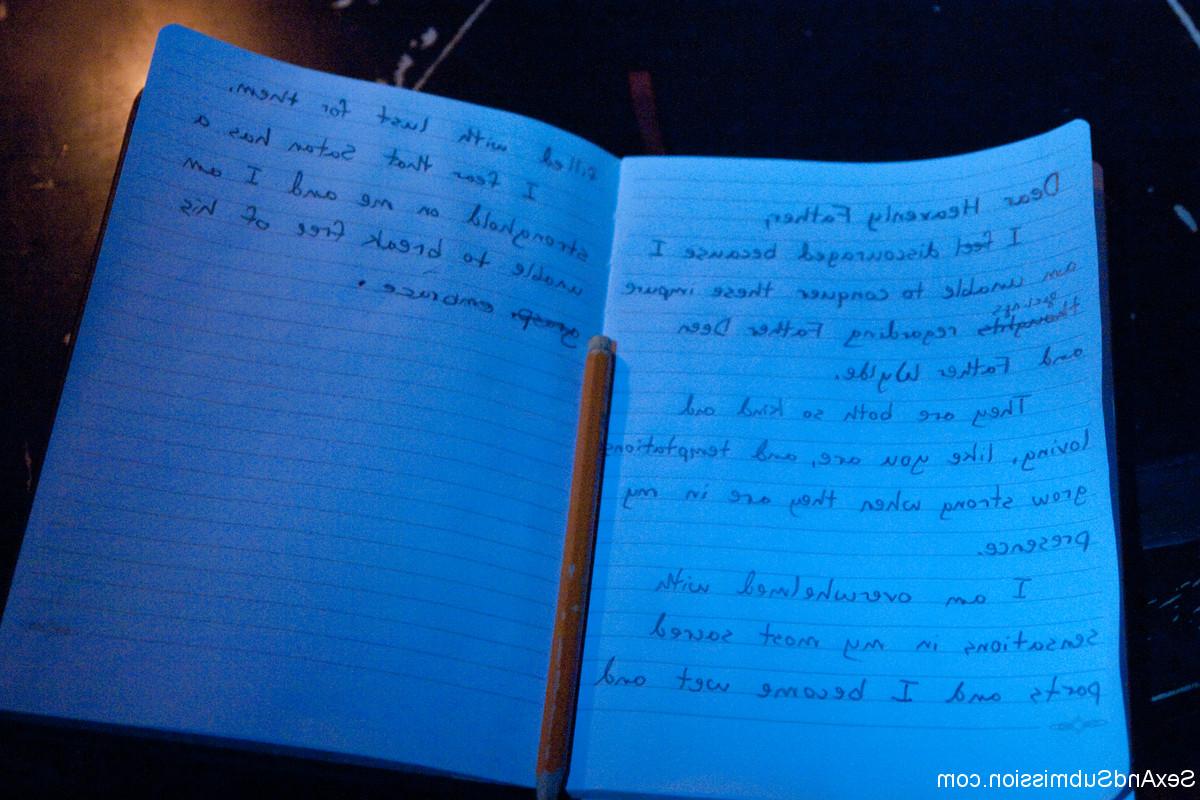 Dear Heavenly Father,
I feel discouraged because I
am unable to conquer these impure
perhaps
thoughts regarding Father Deen
and Father Wylde.
They are both so kind and
loving, like you are, and temptations
grow strong when they are in my
presence.
I am overwhelmed with
sensations in my most sacred
parts and I become wet and
filled with lust for them.
I fear that Satan has a
stronghold on me and I am
unable to break free of his
grasp. embrace.
SexAndSubmission.com